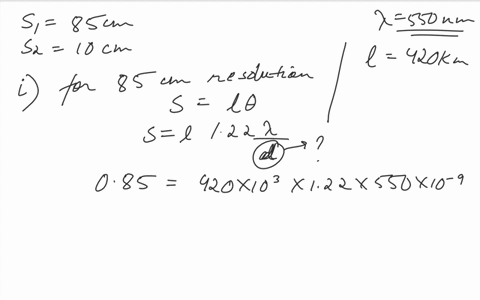 S₁ = 85cm
S₂ = 10 cm
λ = 550 nm
l = 420 Km
i) for 85 cm resolution
S = lθ
S = l 1.22 λ / d → ?
0.85 = 420 × 10³ × 1.22 × 550 × 10⁻⁹